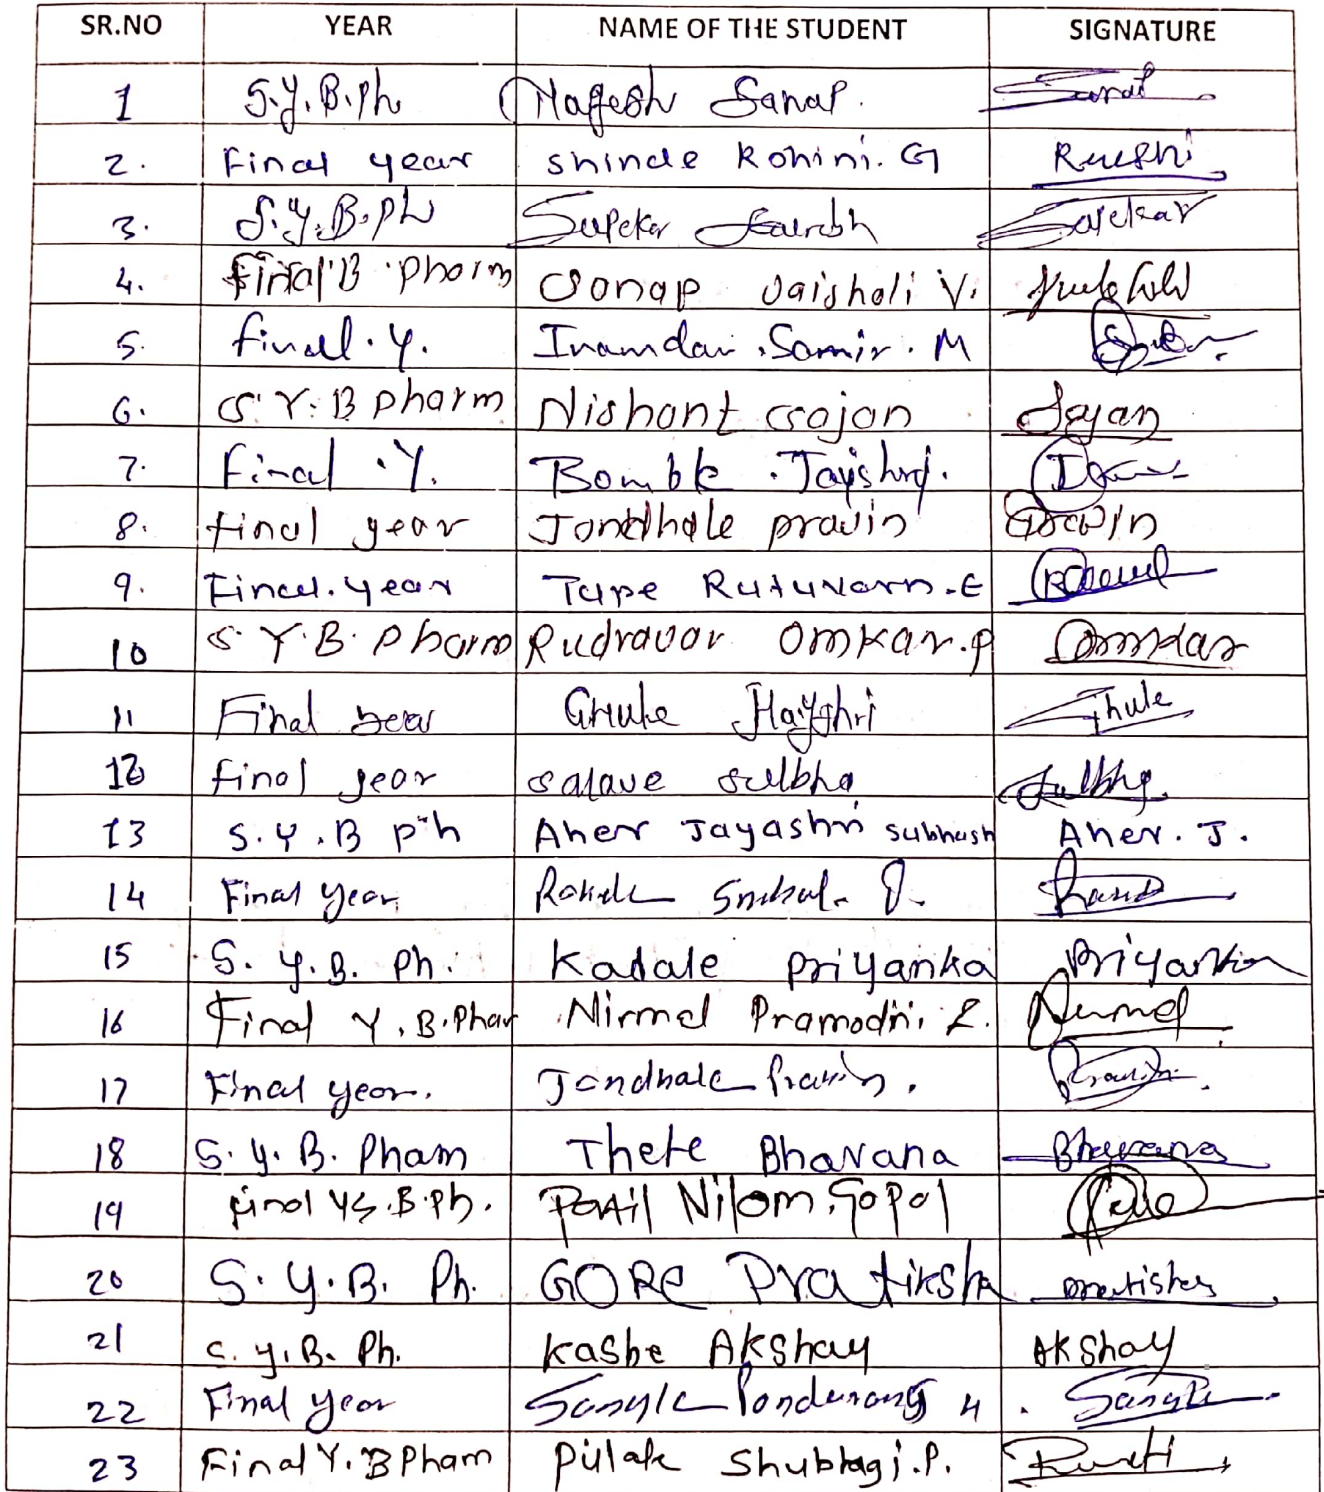 SR.NO YEAR NAME OF THE STUDENT SIGNATURE
1 S.Y.B.Ph Magesh Sanap. Sanap
2. Final year Shinde Rohini. G Rushi
3. S.Y.B.Ph Supekar Saurabh Supekar
4. Final B Pharm Sonap Vaishali V.
5. Final. Y. Inamdar. Samir. M
6. S.Y. B pharm Nishant Sajan Sajan
7. Final .Y. Bomble . Jayshri.
8. final year Jondhale pravin Pravin
9. Final. year Tupe Rutuvarn.E
10 S.Y.B. Pharm Rudravar Omkar.P Omkar
11 Final year Ghule Jayshri Ghule
12 final year Salave Sulbha Sulbha
13 S.Y.B ph Aher Jayashri Subhash Aher. J.
14 Final year
15 S.Y.B. Ph. Kadale Priyanka Priyanka
16 Final Y. B.Phar Nirmal Pramodni. R. Nirmal
17 Final year. Jondhale Pravin. Pravin
18 S.Y.B. Pham Thete Bhavana Bhavana
19 final Y B.Ph. Patil Nilam.Gopal
20 S.Y.B. Ph. GORE Pratiksha
21 S.Y.B. Ph. Kasbe Akshay Akshay
22 Final year Sangle Pandurang H. Sangle
23 Final Y. B Pham Pulate Shubhagi.P.